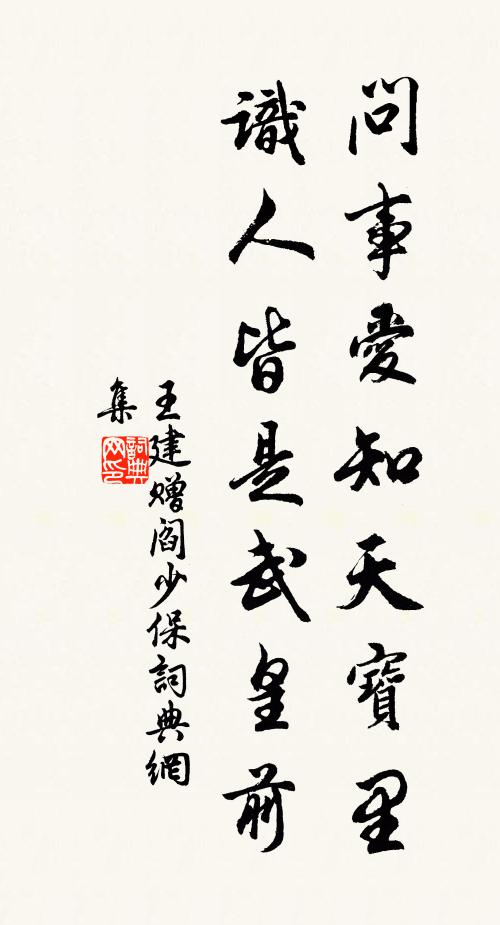 問事愛知天寶里
識人皆是武皇前
王建贈閻少保詞典網
集
詞典
網印